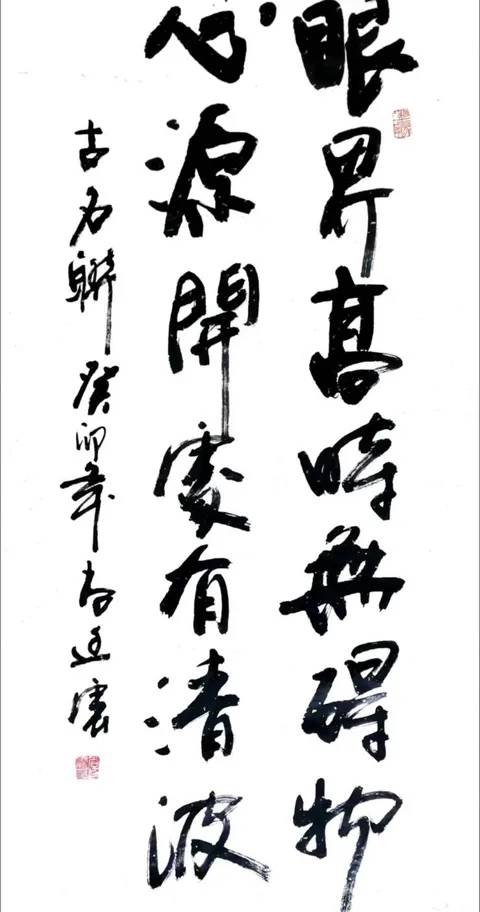 眼界高時無碍物
心源開處有清波
古名聯 癸卯年